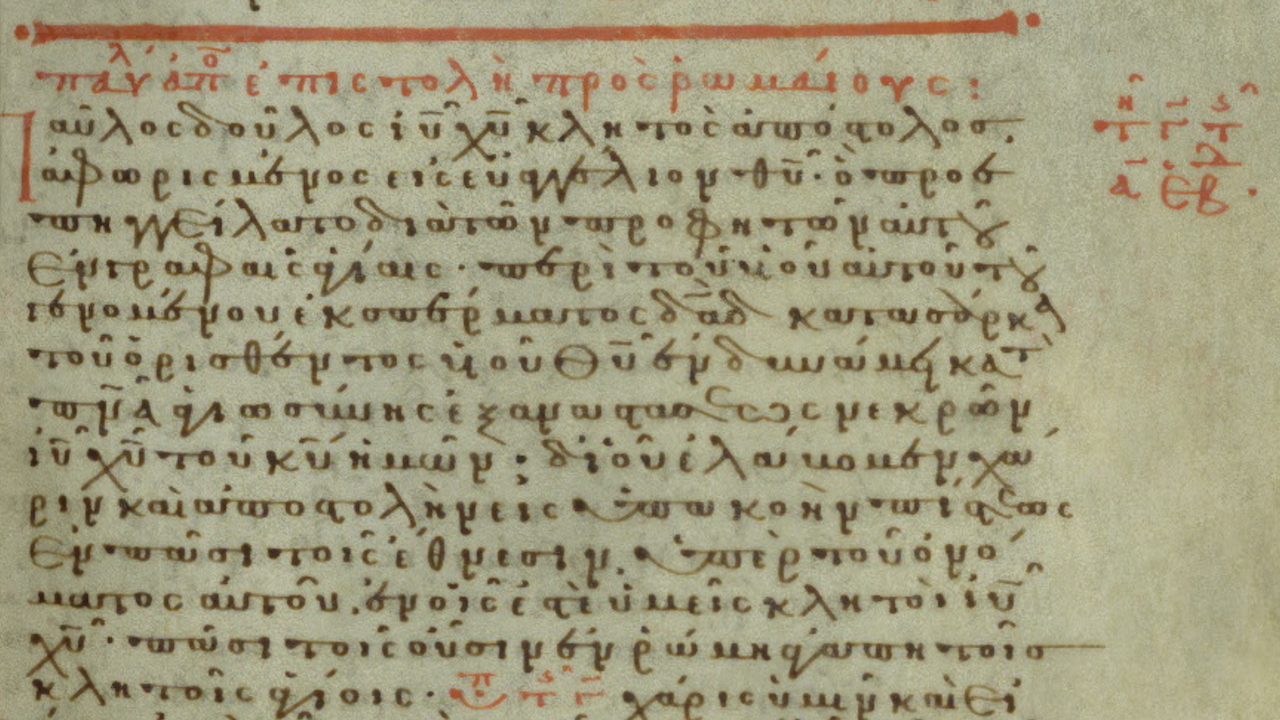 παύλου ἀπο ἐπιστολὴ πρὸς ῥωμαίους:
Παῦλος δοῦλος ἰῦ χῦ κλητὸς ἀπόστολος,
ἀφωρισμένος εἰς εὐαγγέλιον θῦ· ὃ προε
πηγγείλατο διὰ τῶν προφητῶν αὐτοῦ
ἐν γραφαῖς ἁγίαις· περὶ τοῦ υἱοῦ αὐτοῦ τοῦ
γενομένου ἐκ σπέρματος δᾱδ κατὰ σάρκα
τοῦ ὁρισθέντος υἱοῦ θῦ ἐν δυνάμει κατὰ
πνᾱ ἁγιωσύνης ἐξ ἀναστάσεως νεκρῶν
ἰῦ χῦ τοῦ κῦ ἡμῶν· δι' οὗ ἐλάβομεν χά
ριν καὶ ἀποστολὴν εἰς ὑπακοὴν πίστεως
ἐν πᾶσι τοῖς ἔθνεσιν· ὑπὲρ τοῦ ὀνό
ματος αὐτοῦ, ἐν οἷς ἐστὲ ὑμεῖς κλητοὶ ἰῦ
χῦ· πᾶσι τοῖς οὖσιν ἐν ῥώμη ἀγαπητοῖσ
κλητοῖς ἁγίοις· χάρις ὑμῖν καὶ εἰ